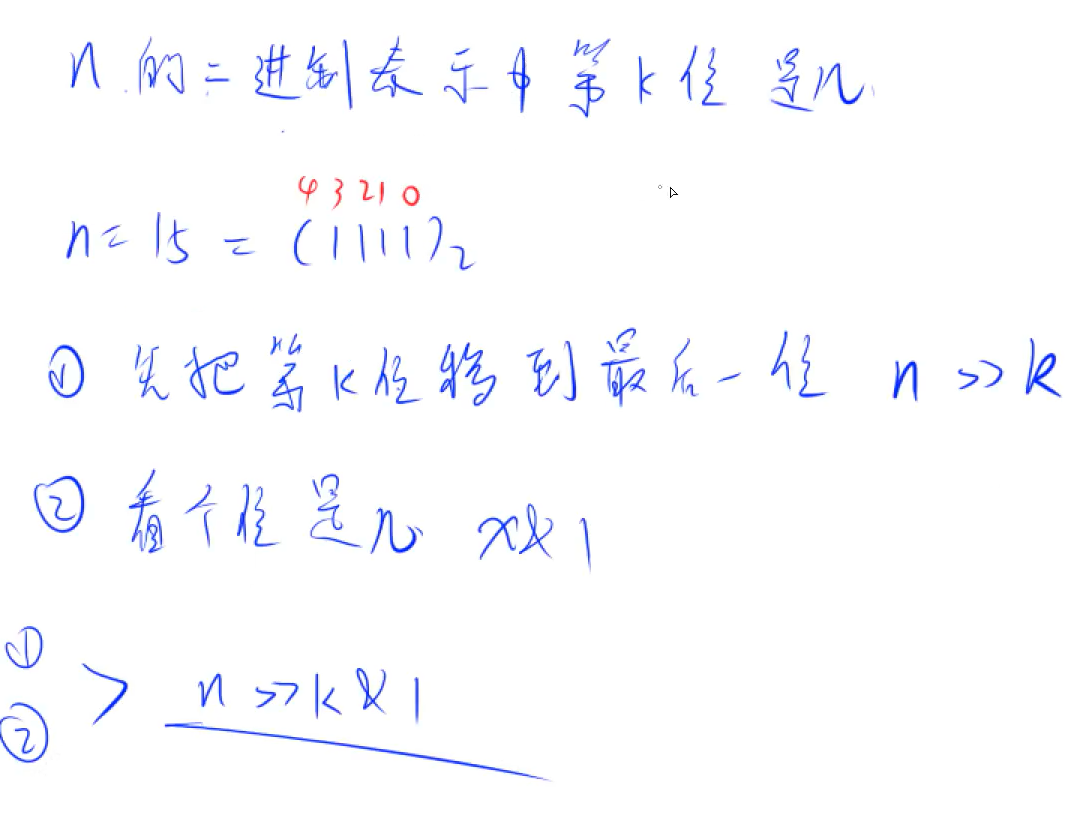 n 的二进制表示中第k位是几
4 3 2 1 0
n = 15 = (1111)₂
① 先把第k位移到最后一位 n >> k
② 看个位是几 x&1
①
② > n >> k & 1